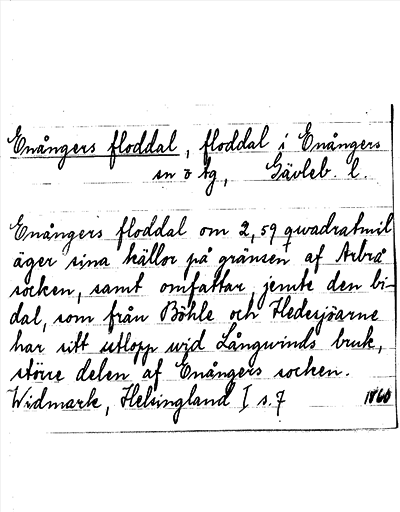 Enångers floddal, floddal i Enångers
sn o tg, Gävleb. l.
Enångers floddal om 2,59 qwadratmil
äger sina källor på gränsen af Arbrå
socken, samt omfattar jemte den bi-
dal, som från Böhle och Hedesjöarne
har sitt utlopp wid Långwinds bruk,
större delen af Enångers socken.
Widmark, Helsingland I s. 7 1860